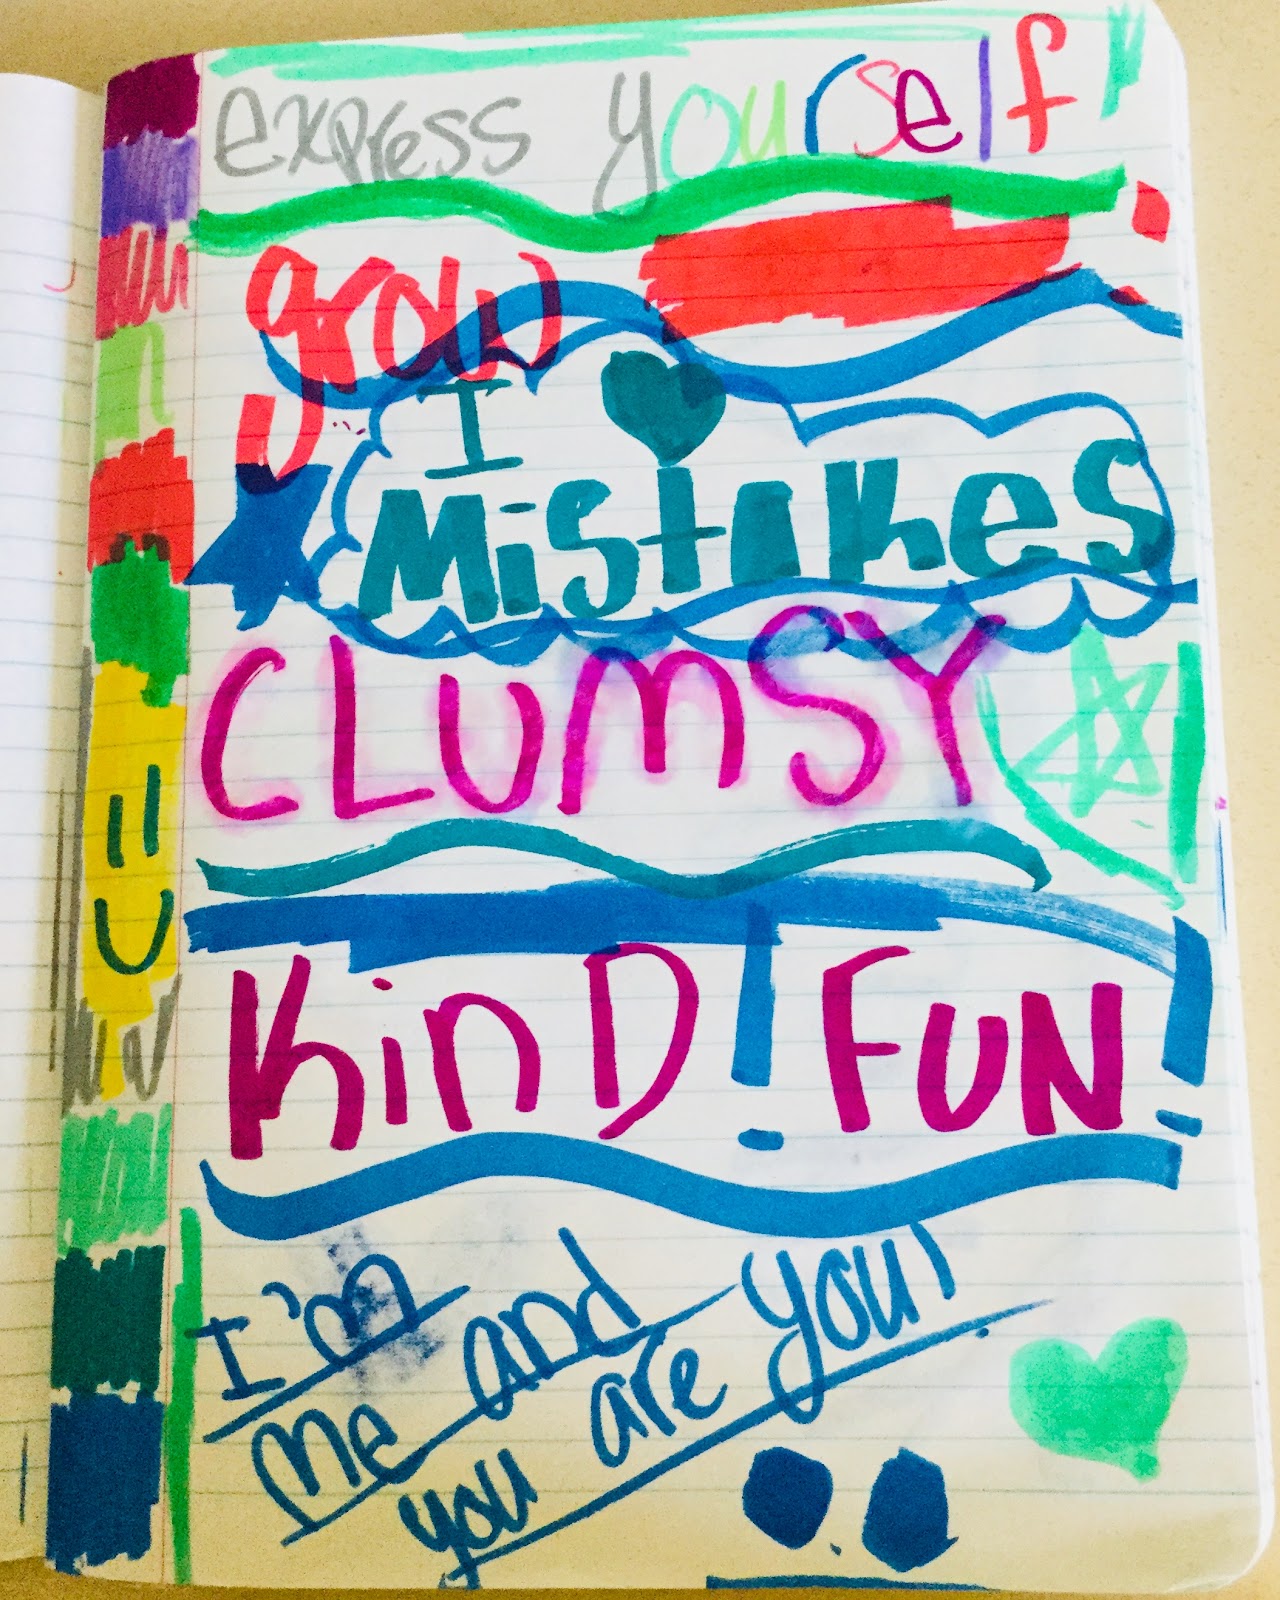 express yourself
grow
I ♥
Mistakes
CLUMSY
KinD! FUN!
I'm
me and
you are you!